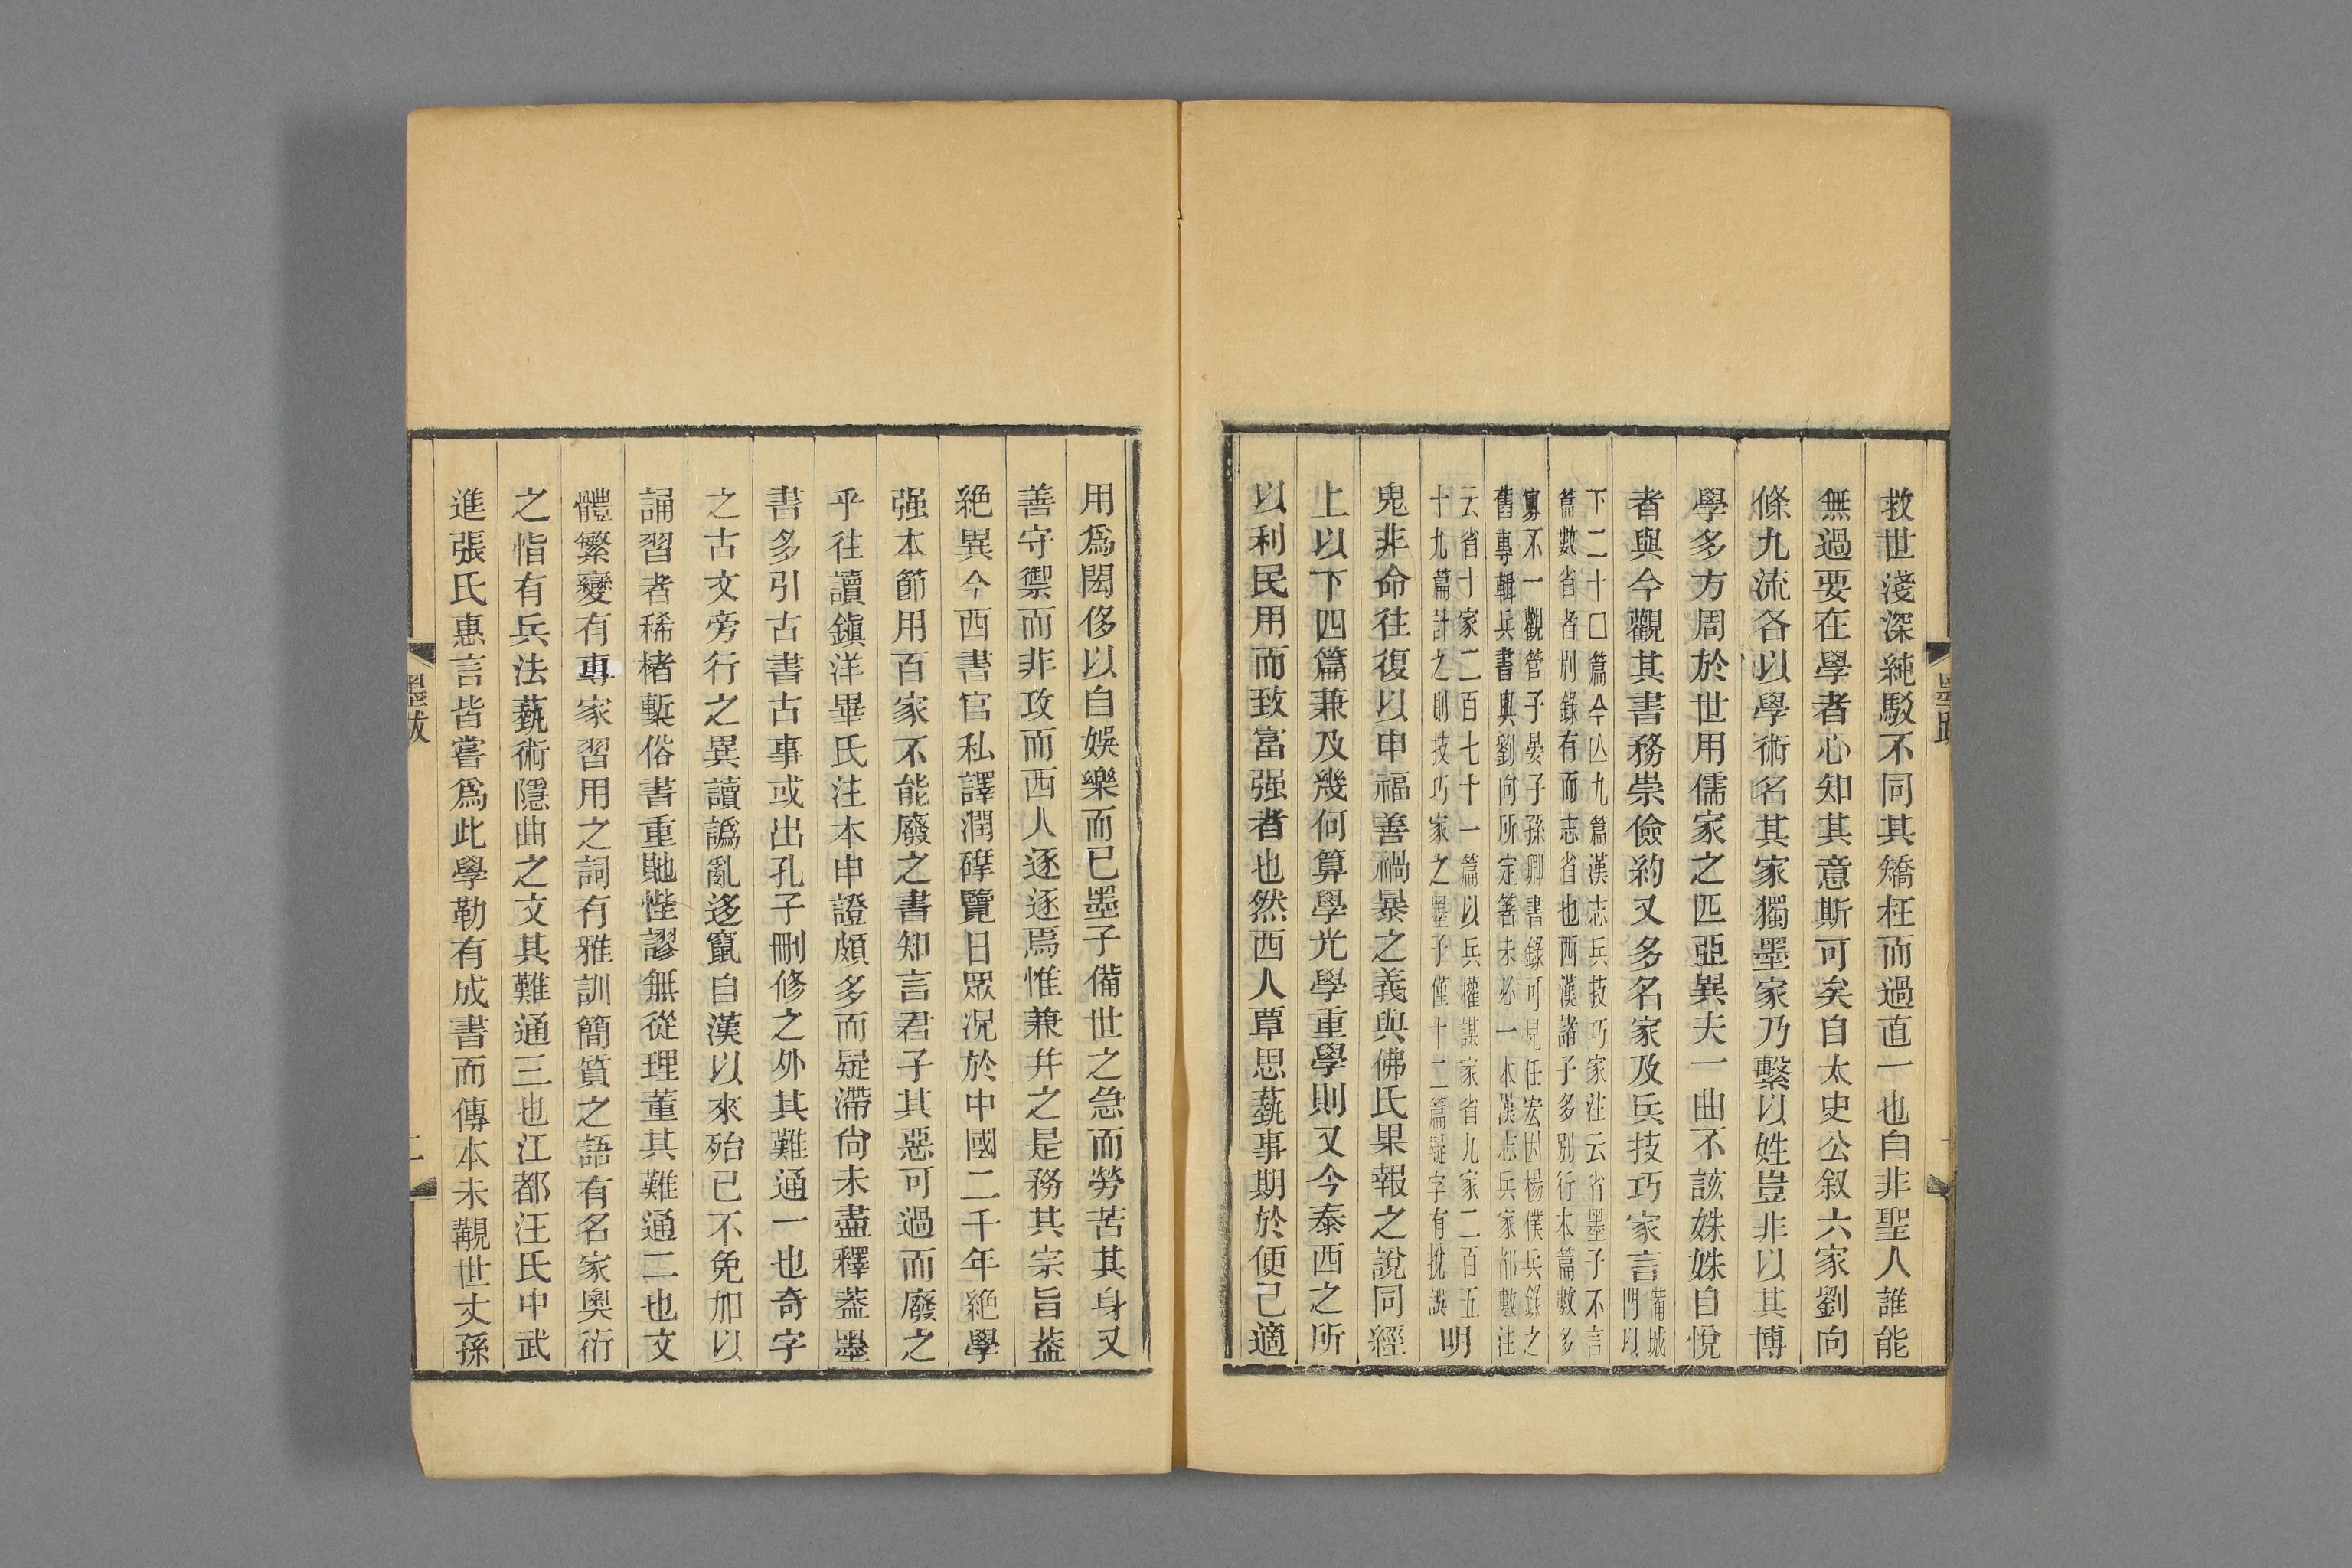 救世淺深純駁不同其矯枉而過直一也自非聖人誰能
無過要在學者心知其意斯可矣自太史公叙六家劉向
條九流各以學術名其家獨墨家乃繫以姓豈非以其博
學多方周於世用儒家之匹亞異夫一曲不該姝姝自悅
者與今觀其書務崇儉約又多名家及兵技巧家言備城
門以
下二十囗篇今亾九篇漢志兵技巧家注云省墨子不言
篇數省者別錄有而志省也西漢諸子多別行本篇數多
寡不一觀管子晏子孫卿書錄可見任宏因楊僕兵錄之
舊專輯兵書與劉向所定箸未必一本漢志兵家都數注
云省十家二百七十一篇以兵權謀家省九家二百五
十九篇計之則技巧家之墨子僅十二篇疑字有挩誤
明
鬼非命往復以申福善禍暴之義與佛氏果報之說同經
上以下四篇兼及幾何算學光學重學則又今泰西之所
以利民用而致富强者也然西人覃思蓺事期於便己適
墨跋
用爲閎侈以自娛樂而已墨子備世之急而勞苦其身又
善守禦而非攻而西人逐逐焉惟兼幷之是務其宗旨葢
絶異今西書官私譯潤硨覽日眾况於中國二千年絶學
强本節用百家不能廢之書知言君子其惡可過而廢之
乎往讀鎭洋畢氏注本申證頗多而疑滯尙未盡釋葢墨
書多引古書古事或出孔子刪修之外其難通一也奇字
之古文旁行之異讀譌亂迻竄自漢以來殆已不免加以
誦習者稀楮槧俗書重貤悂謬無從理董其難通二也文
體繁變有專家習用之詞有雅訓簡質之語有名家奧衍
之恉有兵法蓺術隱曲之文其難通三也江都汪氏中武
進張氏惠言皆嘗爲此學勒有成書而傳本未覯世丈孫
墨跋
二